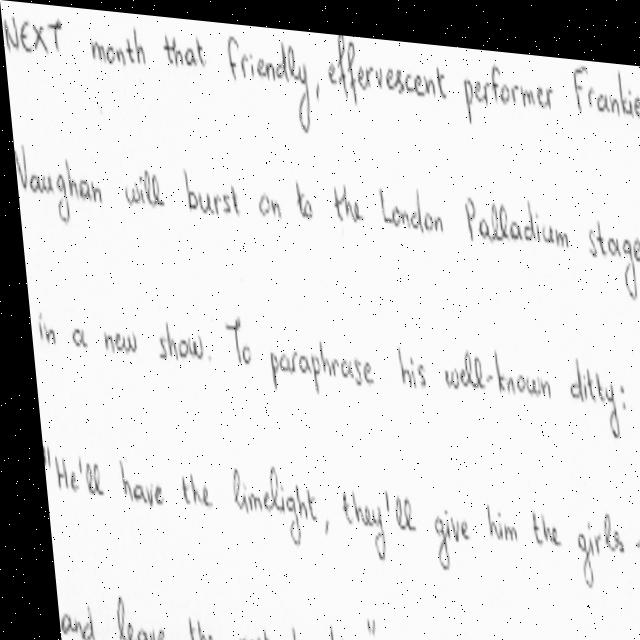 NEXT month that friendly, effervescent performer Frankie
Vaughan will burst on to the London Palladium stage
in a new show. To paraphrase his well-known ditty:
"He'll have the limelight, they'll give him the girls -
and leave the "